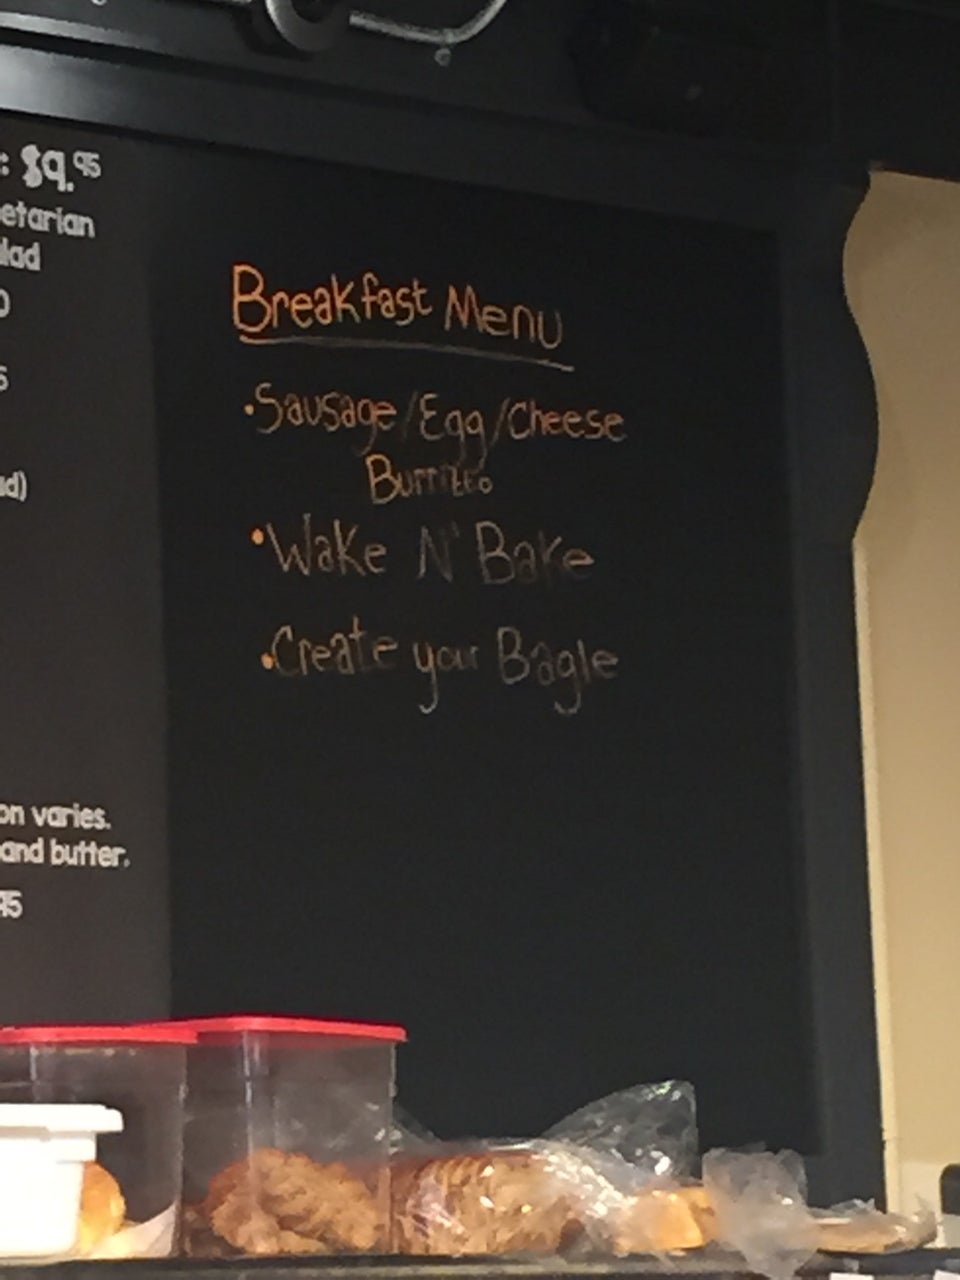 : $9.95
etarian
lad
Breakfast Menu
•Sausage/Egg/Cheese
Burrito
•Wake N' Bake
•Create your Bagle
on varies.
and butter.